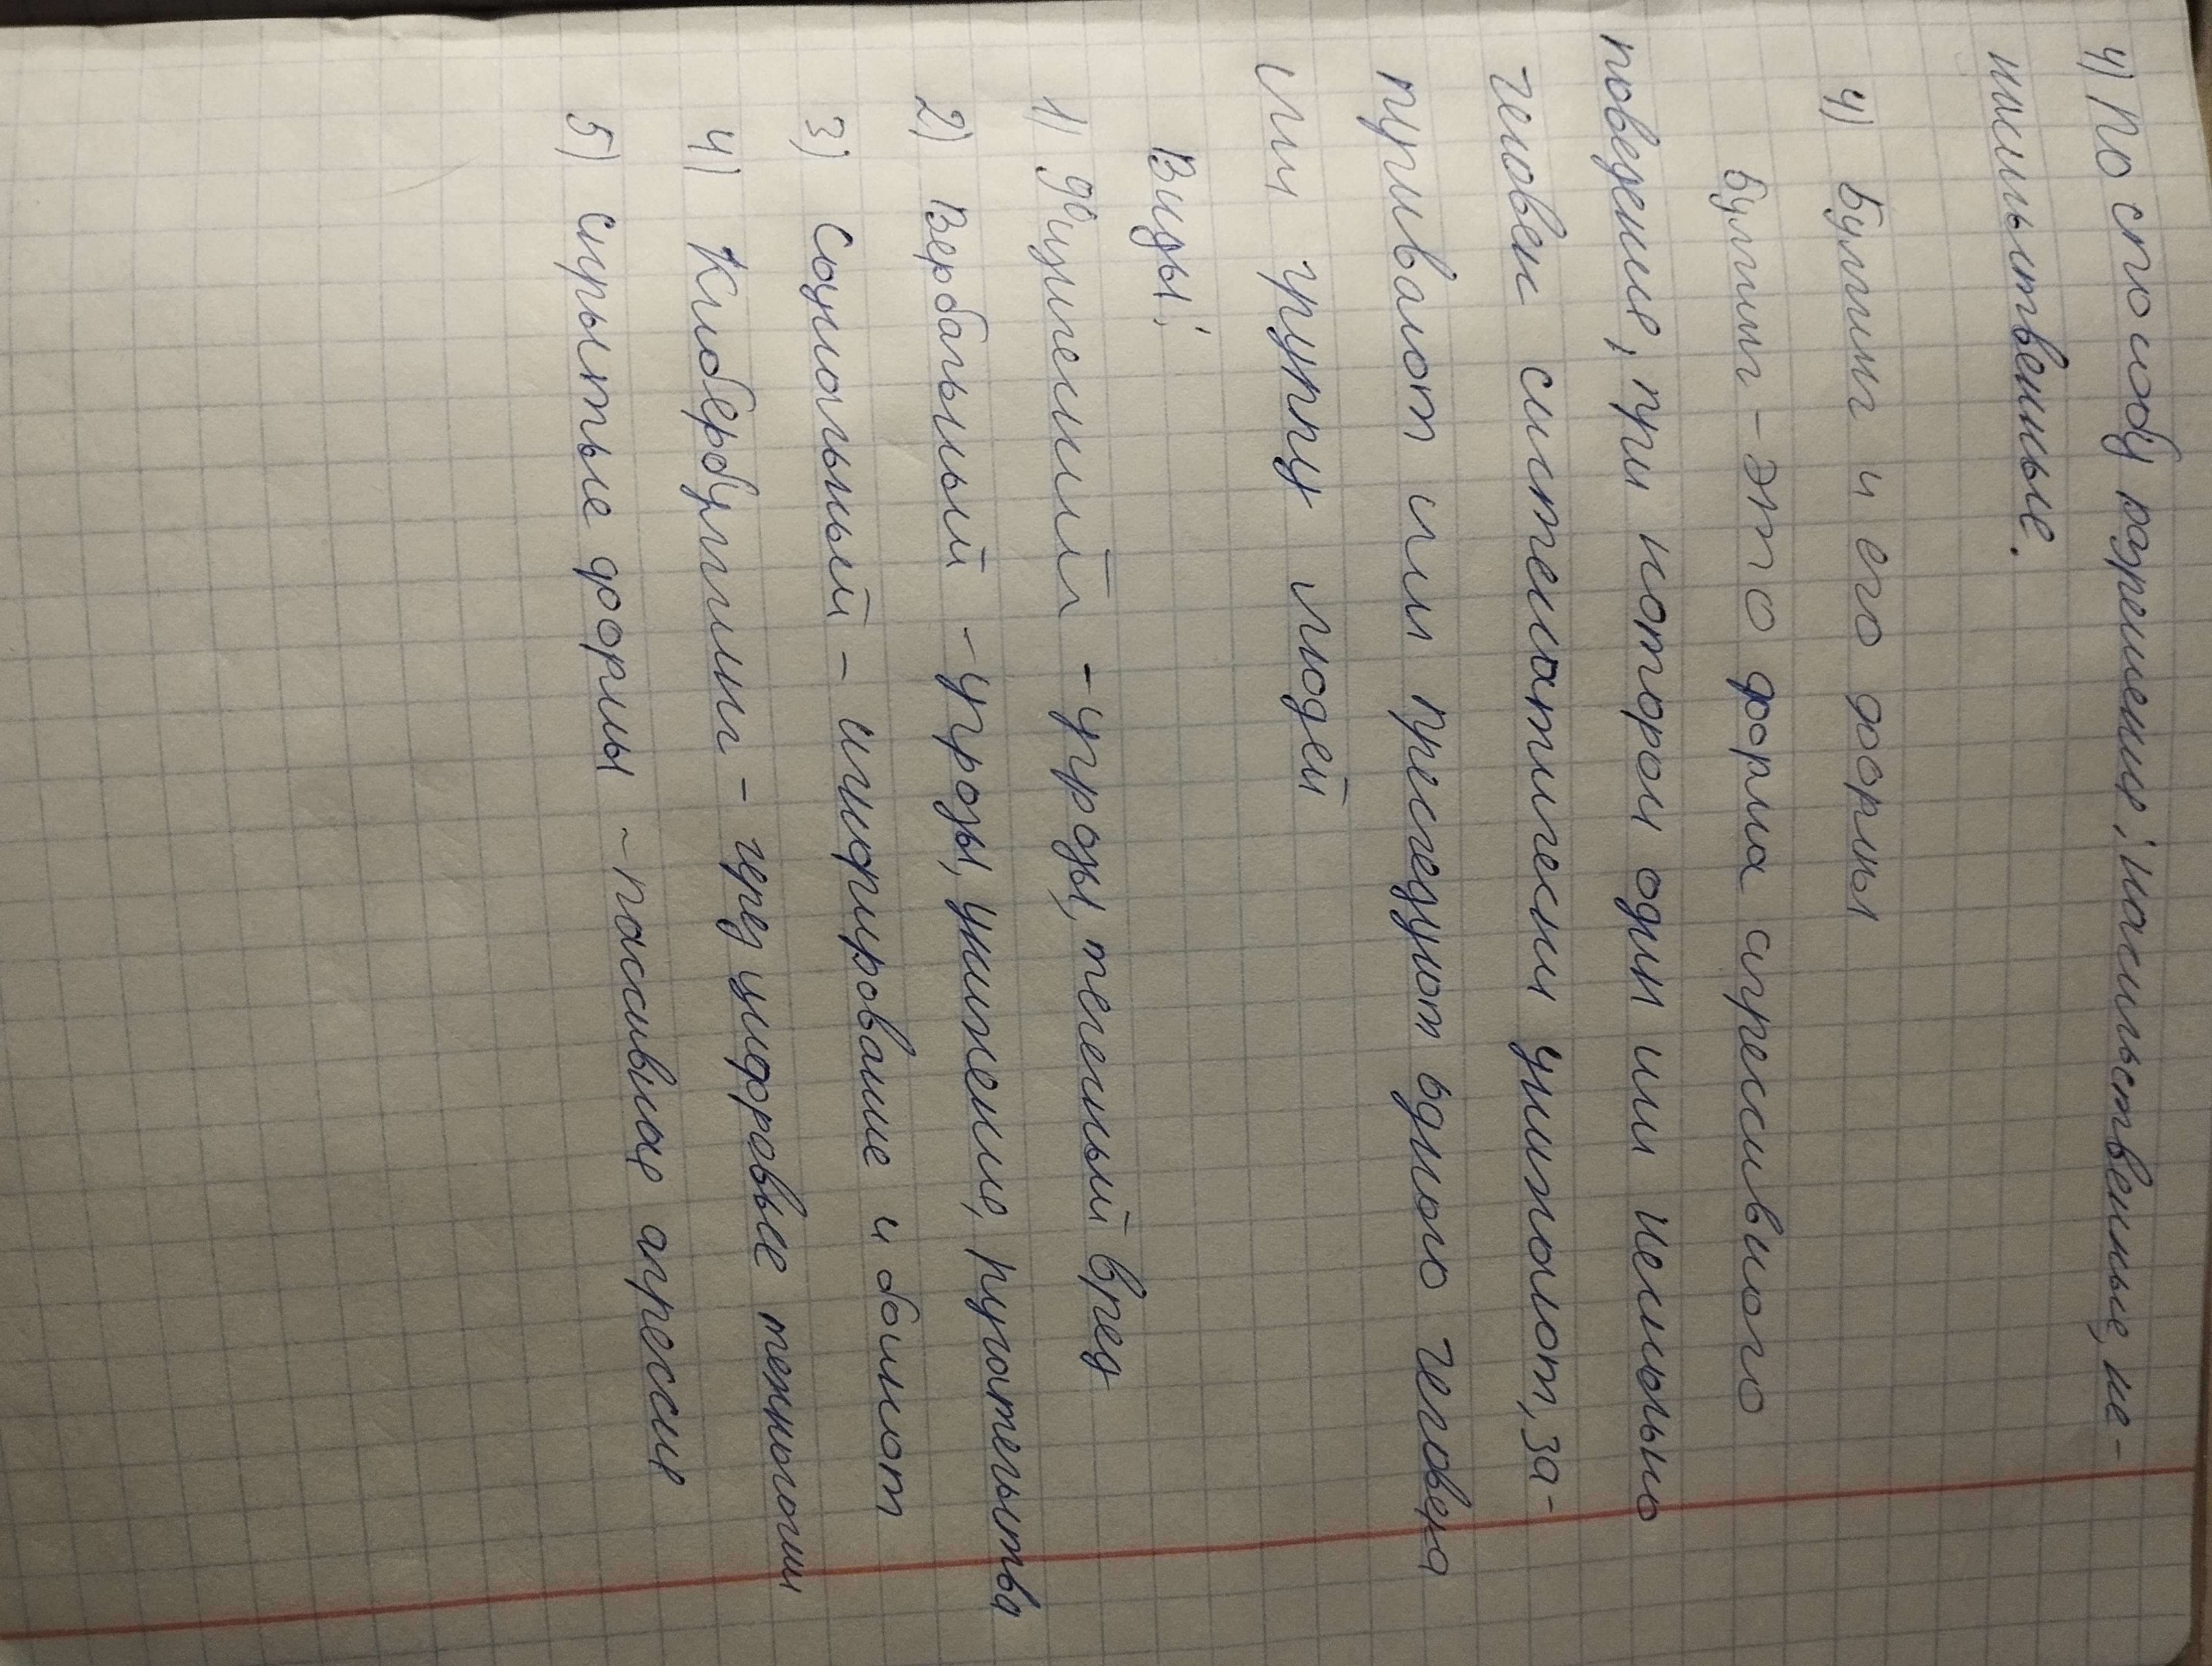 4) По способу разрешения: насильственные, не-
насильственные.
4) Буллинг и его формы
Буллинг - это форма агрессивного
поведения, при котором один или несколько
человек систематически унижают, за-
пугивают или преследуют одного человека
или группу людей
Виды:
1) Физический - угрозы, телесный вред
2) Вербальный - угрозы, унижение, ругательства
3) Социальный - игнорирование и бойкот
4) Кибербуллинг - через цифровые технологии
5) скрытые формы - пассивная агрессия